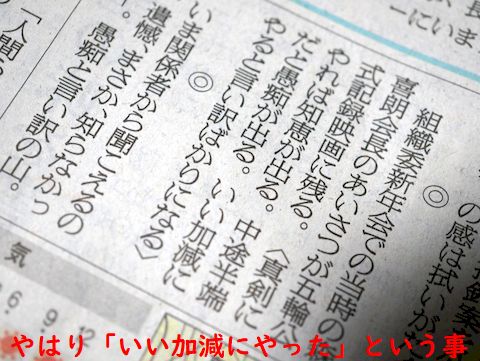 ーにいま
の感は拭いが
◎
組織委新年会での当時の
喜朗会長のあいさつが五輪公
式記録映画に残る。〈真剣に
やれば知恵が出る。中途半端
だと愚痴が出る。いい加減に
やると言い訳ばかりになる〉
◎
いま関係者から聞こえるの
遺憾、まさか、知らなかっ
愚痴と言い訳の山。
「人間
気
6 9 12
やはり「いい加減にやった」という事